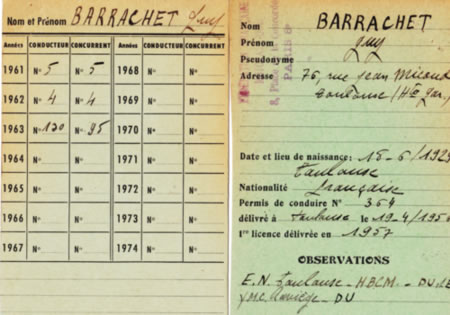 Nom et Prénom BARRACHET Guy
Années CONDUCTEUR CONCURRENT Années CONDUCTEUR CONCURRENT
1961 N° 5 N° 5 1968 N° N°
1962 N° 4 N° 4 1969 N° N°
1963 N° 130 N° 95 1970 N° N°
1964 N° N° 1971 N° N°
1965 N° N° 1972 N° N°
1966 N° N° 1973 N° N°
1967 N° N° 1974 N° N°
Nom BARRACHET
Prénom Guy
Pseudonyme
Adresse 76, rue Jean
Toulouse (Hte Gar.)
8, PARIS 8e
Date et lieu de naissance: 15-6/192
Toulouse
Nationalité Française
Permis de conduire N° 364
délivré à Toulouse le 19-4/195
1re licence délivrée en 1957
OBSERVATIONS
E.N. Toulouse - HBCM - DU
DU